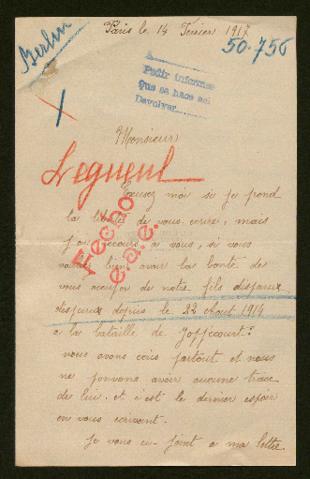 Paris le 14 Février 1917
Berlin
50.756
A
Pedir informes
Que se hace así
Devolver
Monsieur
Legueul
Excusez moi si je prend
la liberté de vous écrire, mais
j'ai recours a vous, si vous
voulez bien avoir la bonté de
vous occuper de notre fils disparux
disparux depuis le 22 Aout 1914
a la bataille de Goffcourt?
vous avons écris partout et nous
ne pouvons avoir aucune trace
de lui. et c'est le dernier espoir
en vous écrivant.
Je vous ci-joint a ma lettre
Fecho
e.a.e.